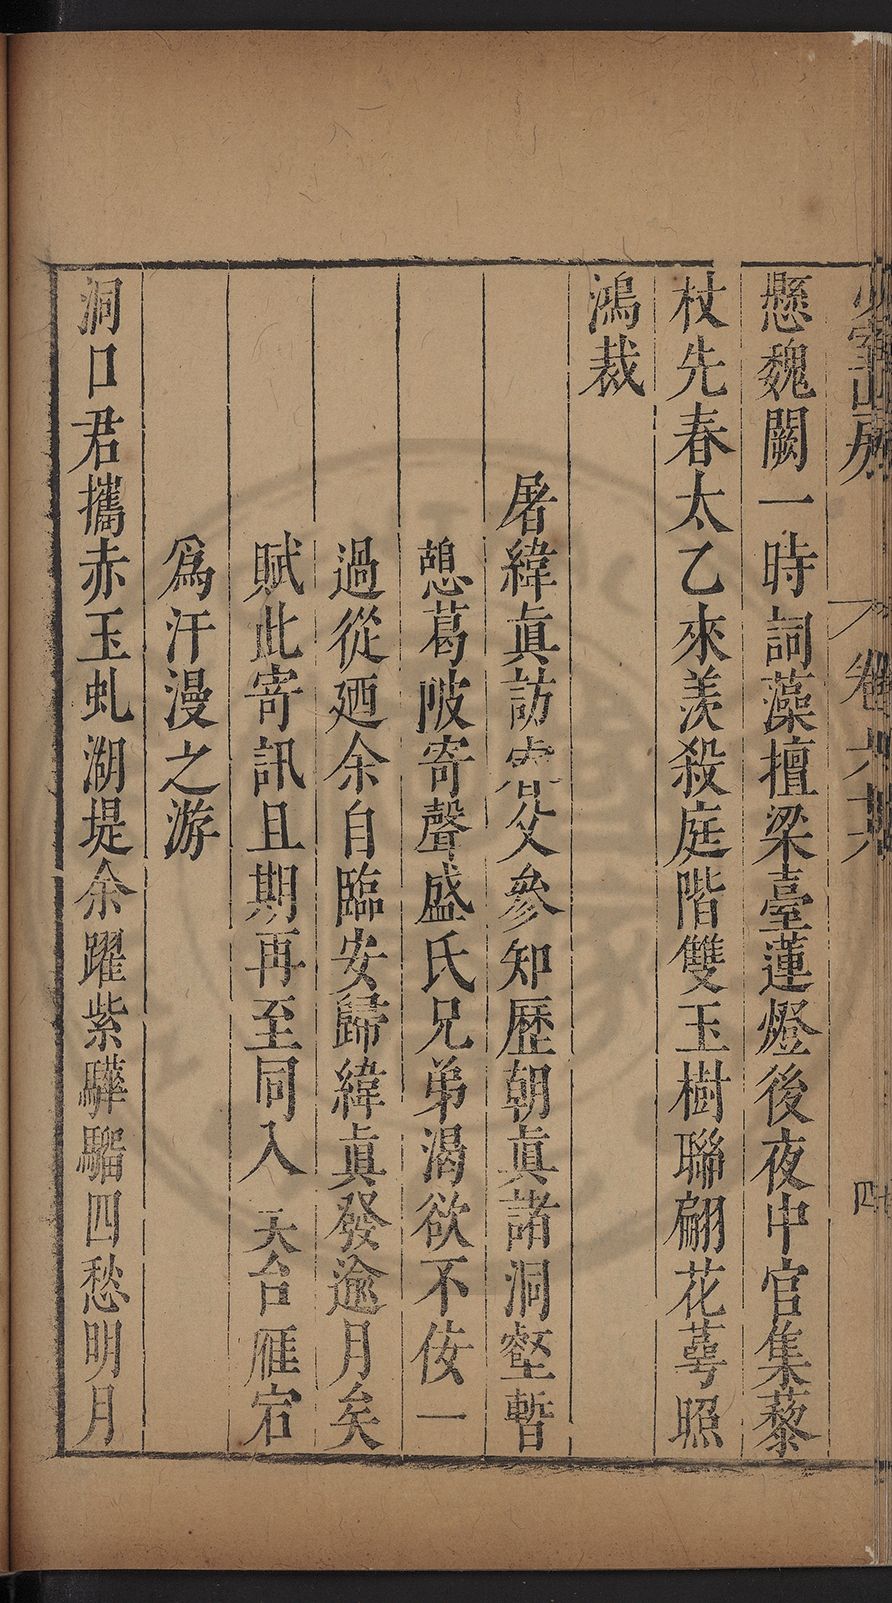 懸魏闕一時詞藻擅梁臺蓮燈後夜中官集藜
杖先春太乙來羨殺庭階雙玉樹聯翩花萼照
鴻裁
屠緯眞訪睿父參知歷朝眞諸洞壑暫
憩葛陂寄聲盛氏兄弟渴欲不佞一
過從廼余自臨安歸緯眞發逾月矣
賦此寄訊且期再至同入天台雁宕
爲汗漫之游
洞口君攜赤玉虬湖堤余躍紫驊騮四愁明月